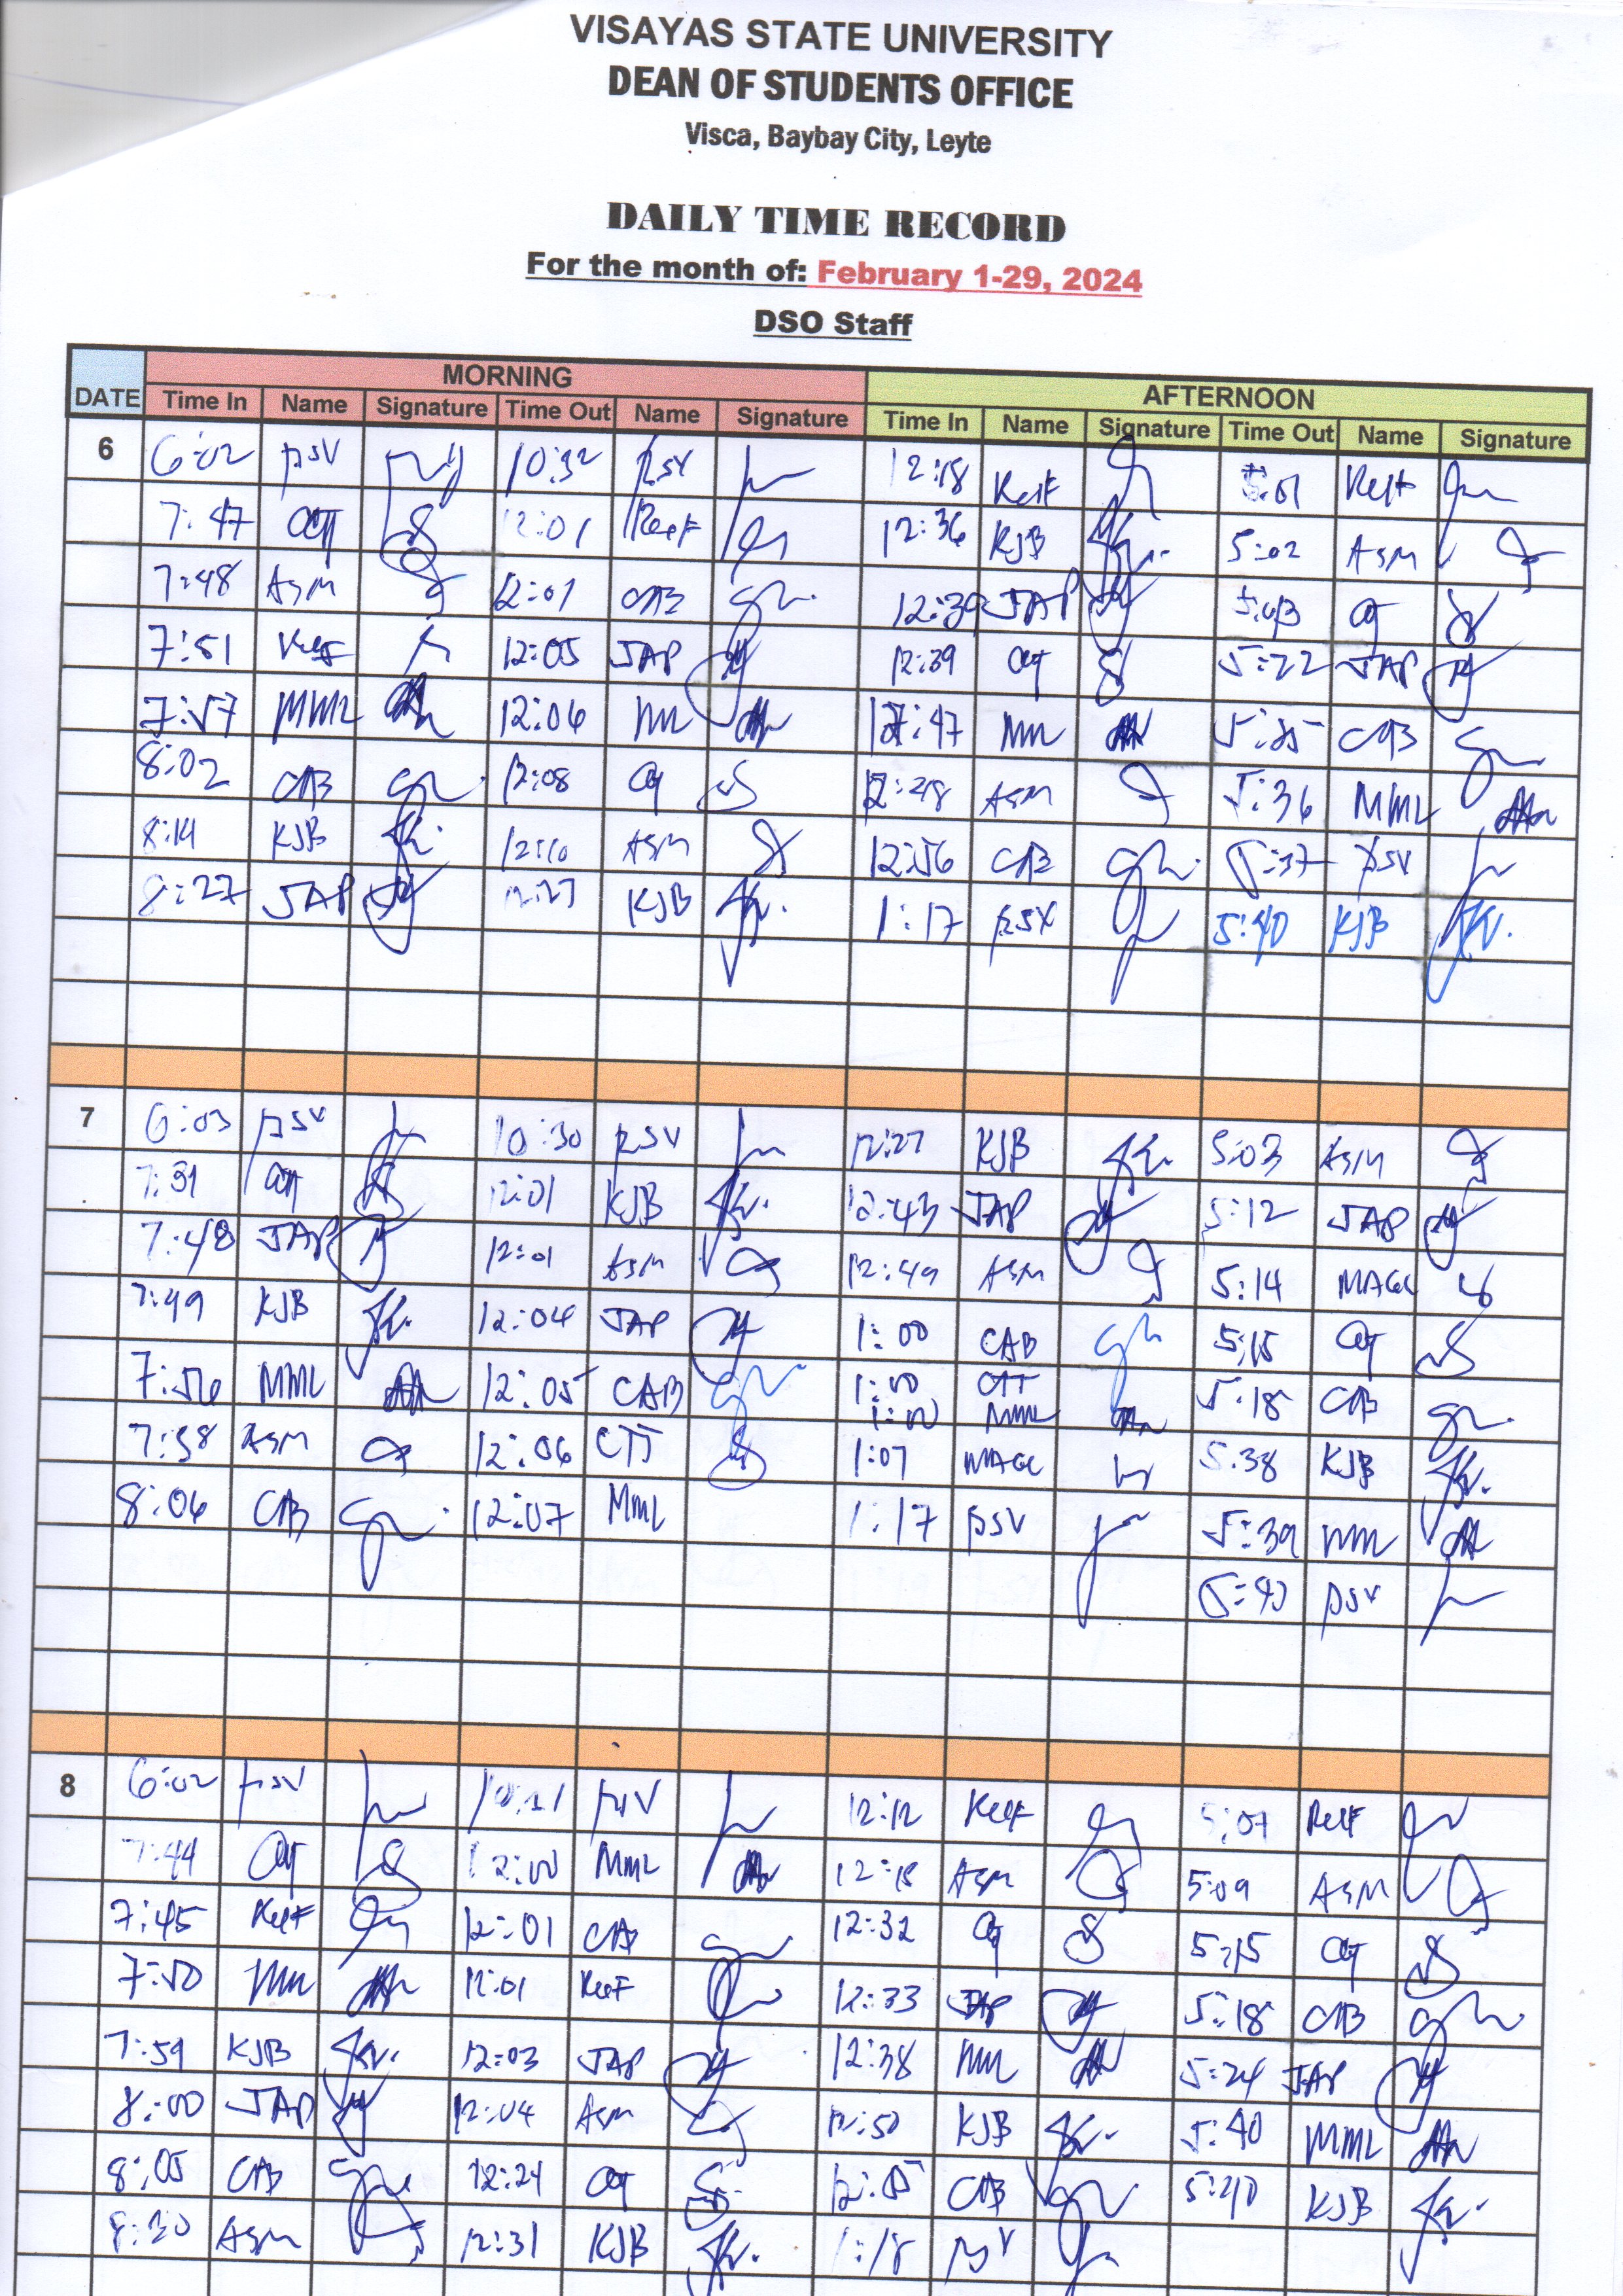 VISAYAS STATE UNIVERSITY
DEAN OF STUDENTS OFFICE
Visca, Baybay City, Leyte
DAILY TIME RECORD
For the month of: February 1-29, 2024
DSO Staff
DATE MORNING AFTERNOON
Time In Name Signature Time Out Name Signature Time In Name Signature Time Out Name Signature
6 6:02 psv 10:32 psv 12:18 5:01
7:47 12:01 12:36 KJB 5:02 ASM
7:48 ASM 12:01 CAB 12:39 JAP 5:03
7:51 12:05 JAP 12:39 5:22 JAP
7:57 MML 12:06 12:47 CAB
8:02 CAB 12:08 ASM 5:36 MML
KJB 12:10 ASM 12:56 CAB 5:37 psv
8:27 JAP 12:27 KJB 1:17 psv 5:40 KJB
7 6:03 psv 10:30 psv 12:27 KJB 5:03 ASM
7:31 12:01 KJB 12:43 JAP 5:12 JAP
7:48 JAP 12:01 ASM 12:49 ASM 5:14 MAGC
7:49 KJB 12:04 JAP 1:00 CAB 5:15
7:56 MML 12:05 CAB 1:00 CTT 5:18 CAB
1:00 MML
7:58 ASM 12:06 CTT 1:07 MAGC 5:38 KJB
8:06 CAB 12:07 MML 1:17 psv 5:39
5:40 psv
8 6:02 psv psv 12:12 5:07
7:44 12:00 MML 12:18 ASM 5:09 ASM
7:45 12:01 CAB 12:32 5:15
7:50 12:01 12:33 JAP 5:18 CAB
7:59 KJB 12:03 JAP 12:38 5:24 JAP
8:00 JAP 12:04 ASM 12:50 KJB 5:40 MML
8:05 CAB 12:24 CAB 5:40 KJB
ASM 12:31 KJB 1:18 psv